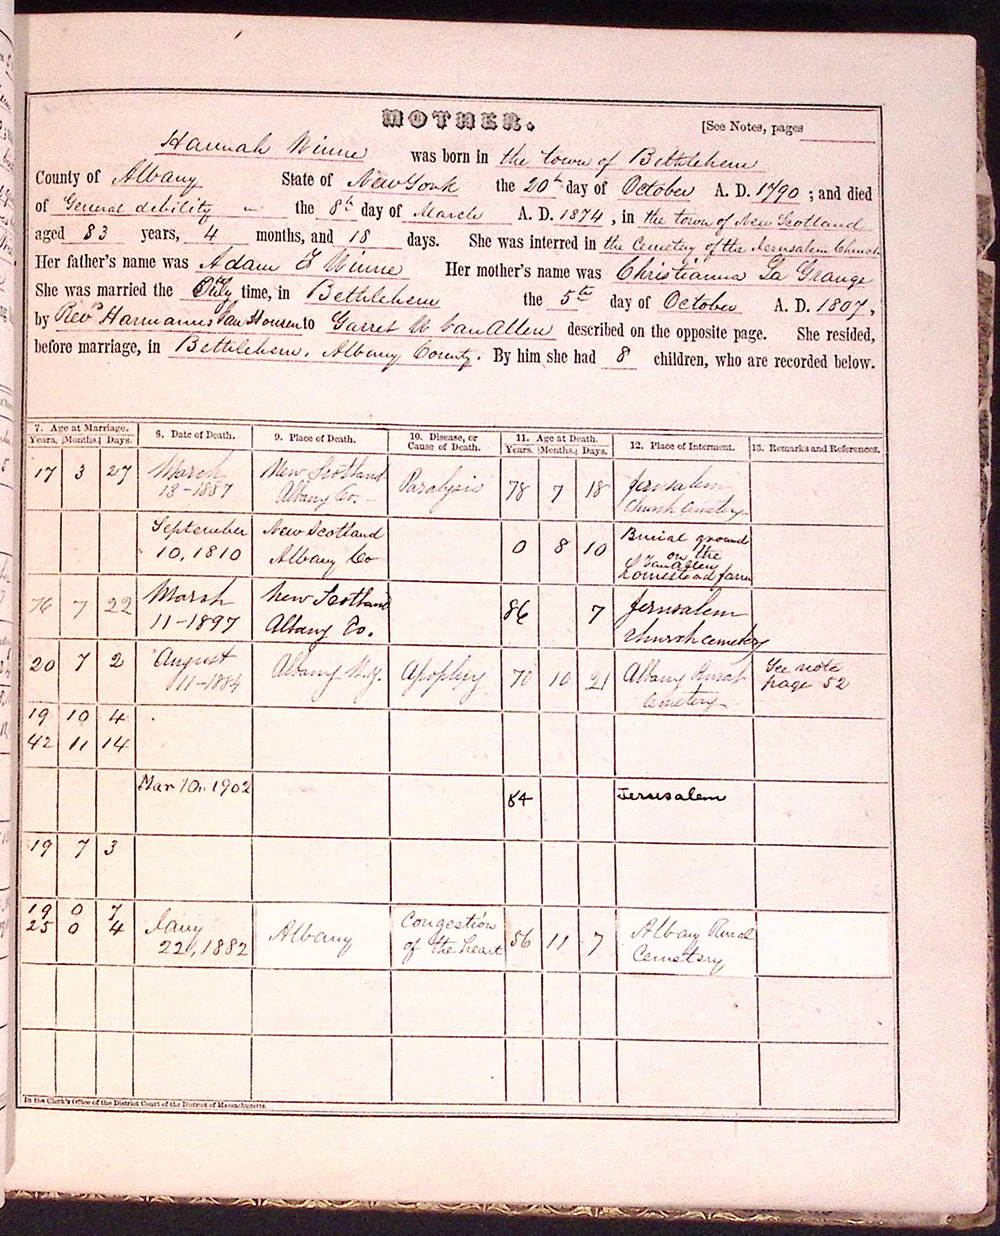 MOTHER.
[See Notes, pages
Hannah Winne was born in the town of Bethlehem
County of Albany State of New York the 20th day of October A. D. 1790 ; and died
of General debility the 8th day of March A. D. 1874, in the town of New Scotland
aged 83 years, 4 months, and 18 days. She was interred in the Cemetery of the Jerusalem Church
Her father's name was Adam Winne Her mother's name was Christianna La Grange
She was married the Only time, in Bethlehem the 5th day of October A. D. 1807,
by Revd Harmanus Van Housen to Garret W Van Allen described on the opposite page. She resided,
before marriage, in Bethlehem, Albany County. By him she had 8 children, who are recorded below.
7. Age at Marriage. 8. Date of Death. 9. Place of Death. 10. Disease, or Cause of Death. 11. Age at Death. 12. Place of Interment. 13. Remarks and References.
Years. Months. Days. Years. Months. Days.
17 3 27 March 13-1887 New Scotland Albany Co. Paralysis 78 7 18 Jerusalem Church Cemetery
September 10, 1810 New Scotland Albany Co 0 8 10 Burial ground on the Van Allen homestead farm
76 7 22 March 11-1897 New Scotland Albany Co. 86 7 Jerusalem Church cemetery
20 7 2 August 11-1884 Albany N.Y. Apoplexy 70 10 21 Albany Rural Cemetery See note page 52
19 10 4
42 11 14
Mar 10, 1902 84 Jerusalem
19 7 3
19 0 7
25 0 4 Jany 22, 1882 Albany Congestion of the heart 56 11 7 Albany Rural Cemetery
In the Clerk's Office of the District Court of the District of Massachusetts.